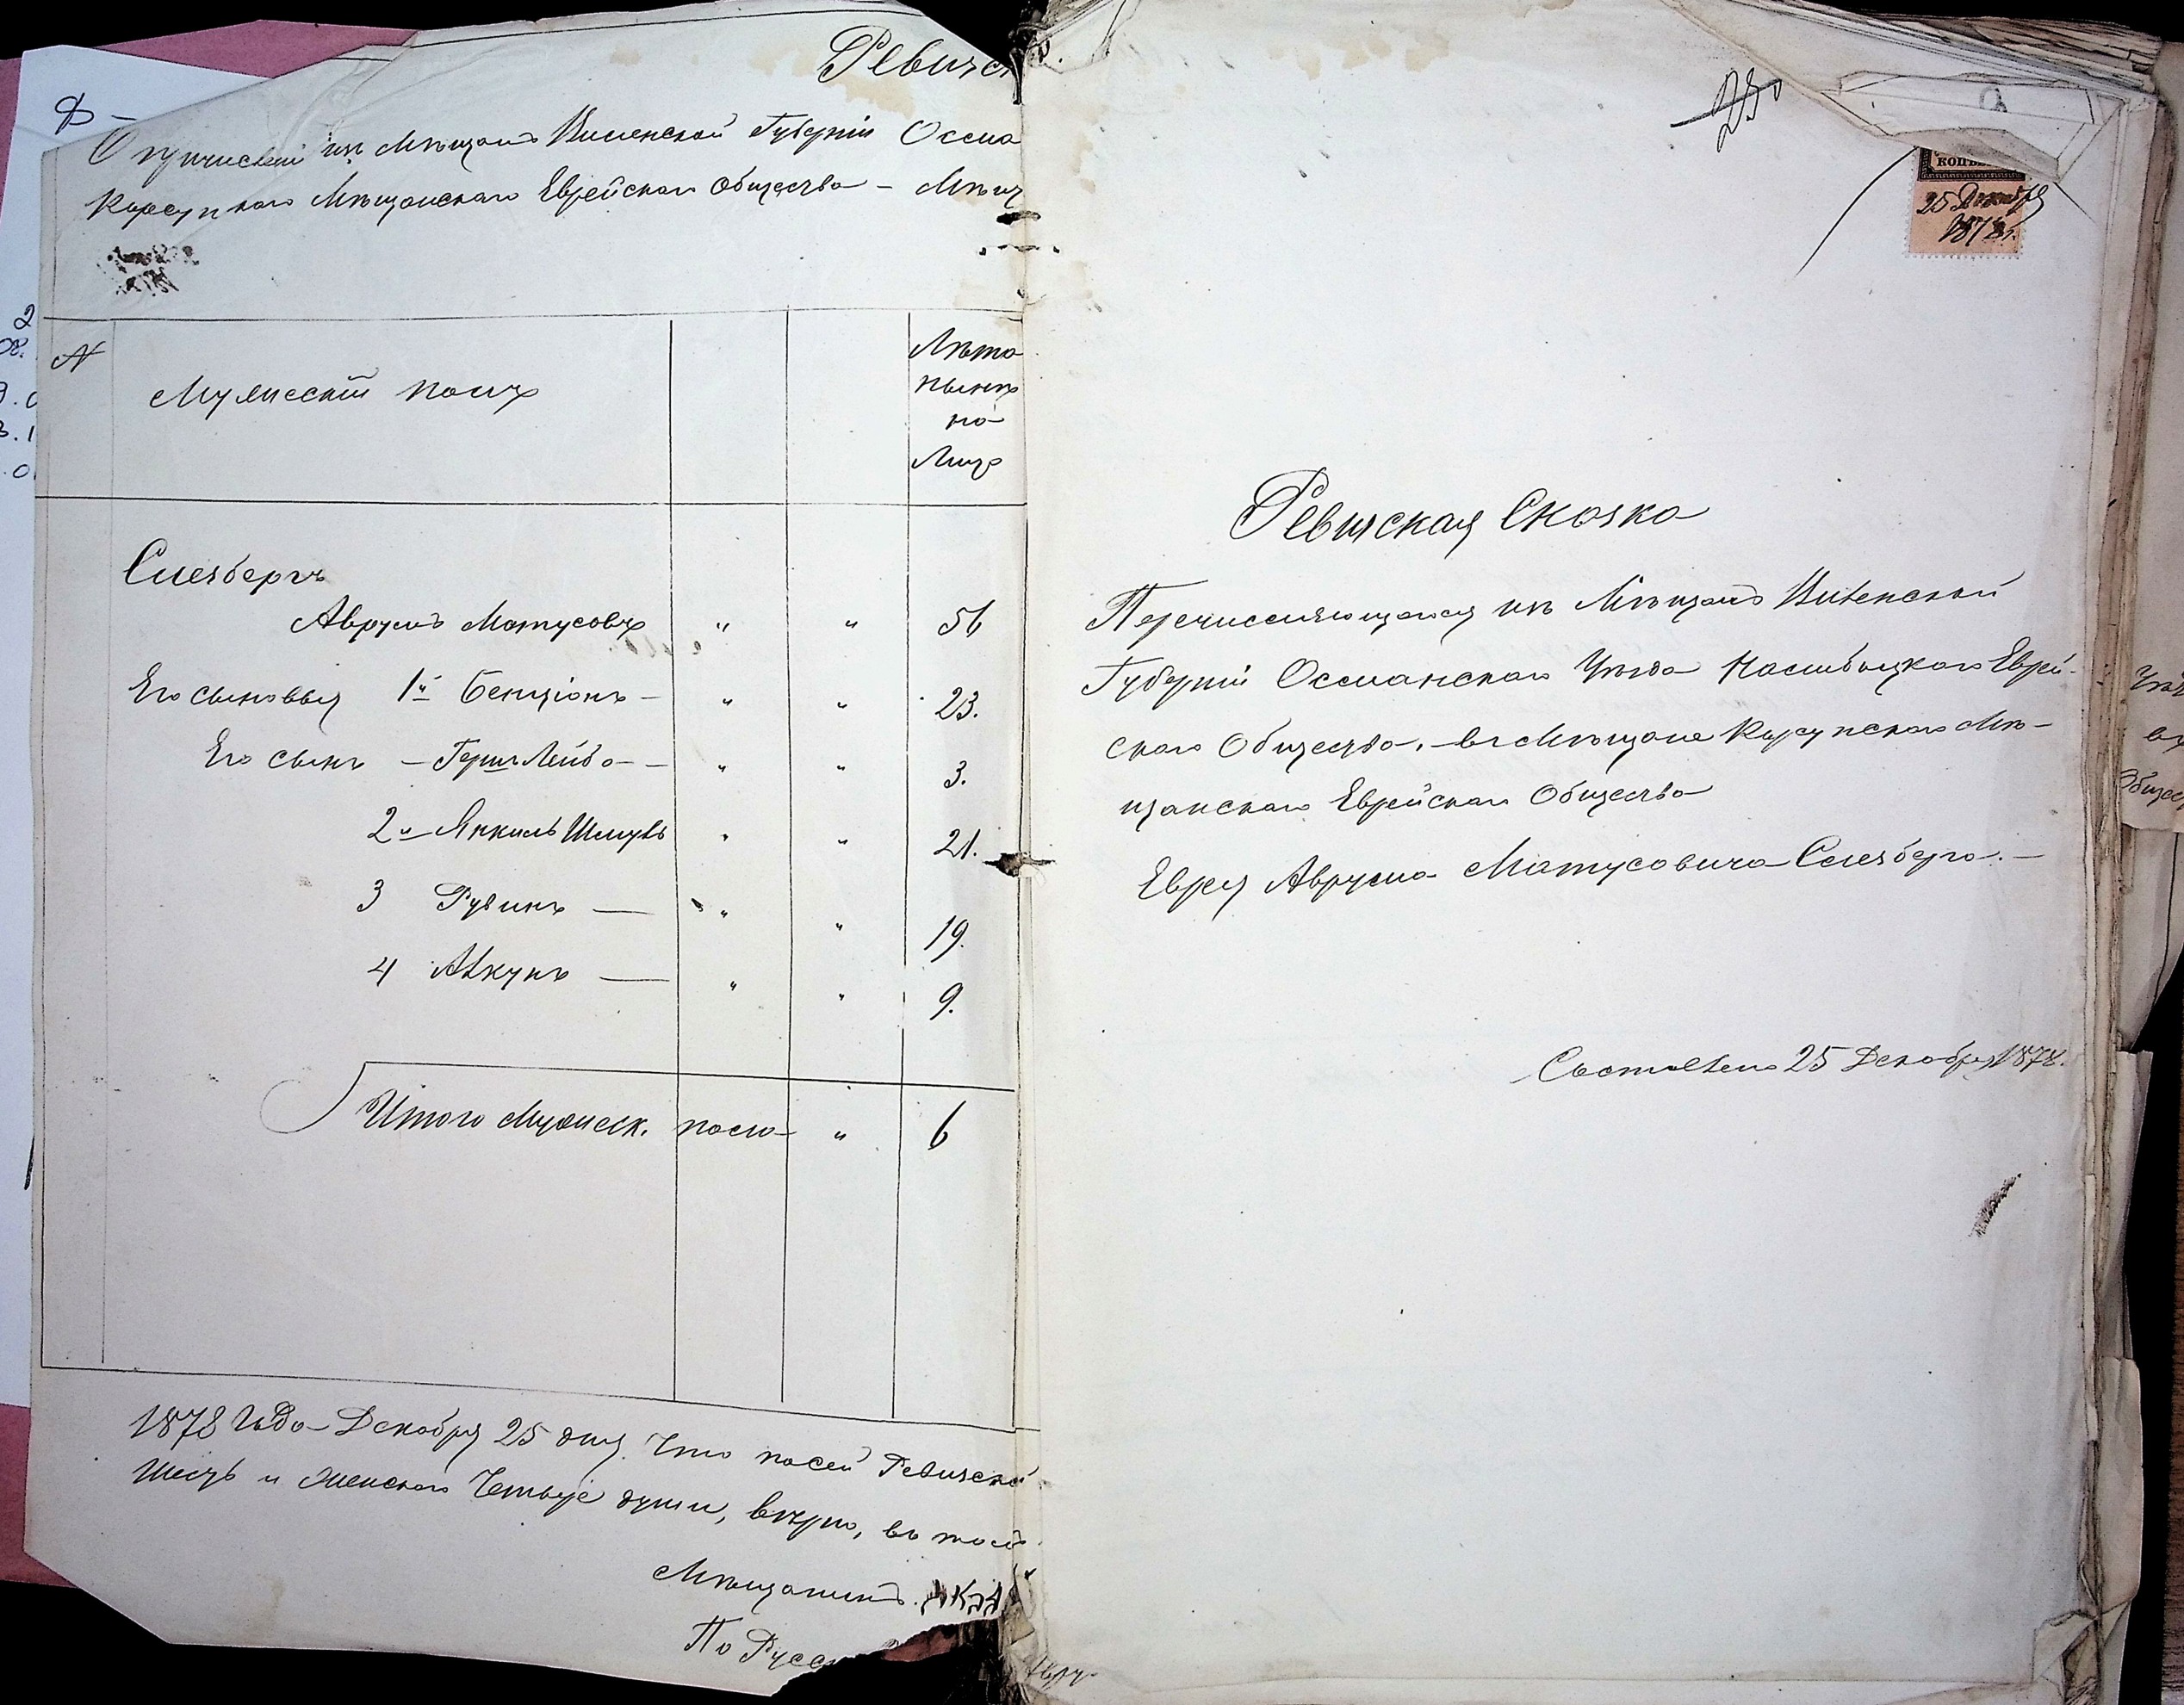 Ревизск
О причислении изъ Мѣщанъ Виленской Губерніи Ошма
Корсунскаго Мѣщанскаго Еврейскаго Общества – Мѣщ
N
Мужескій полъ
Лѣта
нынѣ
на
Лицо
Слезбергъ
Аврумъ Матусовъ " " 56
Его сыновья 1й Бенціонъ – " " 23.
Его сынъ – Герш Лейба – " " 3.
2й Янкиль Шмуль " " 21.
3 Рубинъ — " " 19.
4 — " " 9.
Итого Мужеск. пола – " 6
1878 Года Декабря 25 дня. Что по сей Ревизской
Шесть и женскаго Четыре души, вѣрно, въ томъ
Мѣщанинъ.
По Русс
25 Декабря
1878 г.
Ревизская Сказка
Перечисляющагося изъ Мѣщанъ Виленской
Губерніи Ошмянскаго Уѣзда Еврей-
скаго Общества, – въ Мѣщане Корсунскаго Мѣ-
щанскаго Еврейскаго Общества
Еврея Аврума Матусовича Слезберга. –
Составлена 25 Декабря 1878.